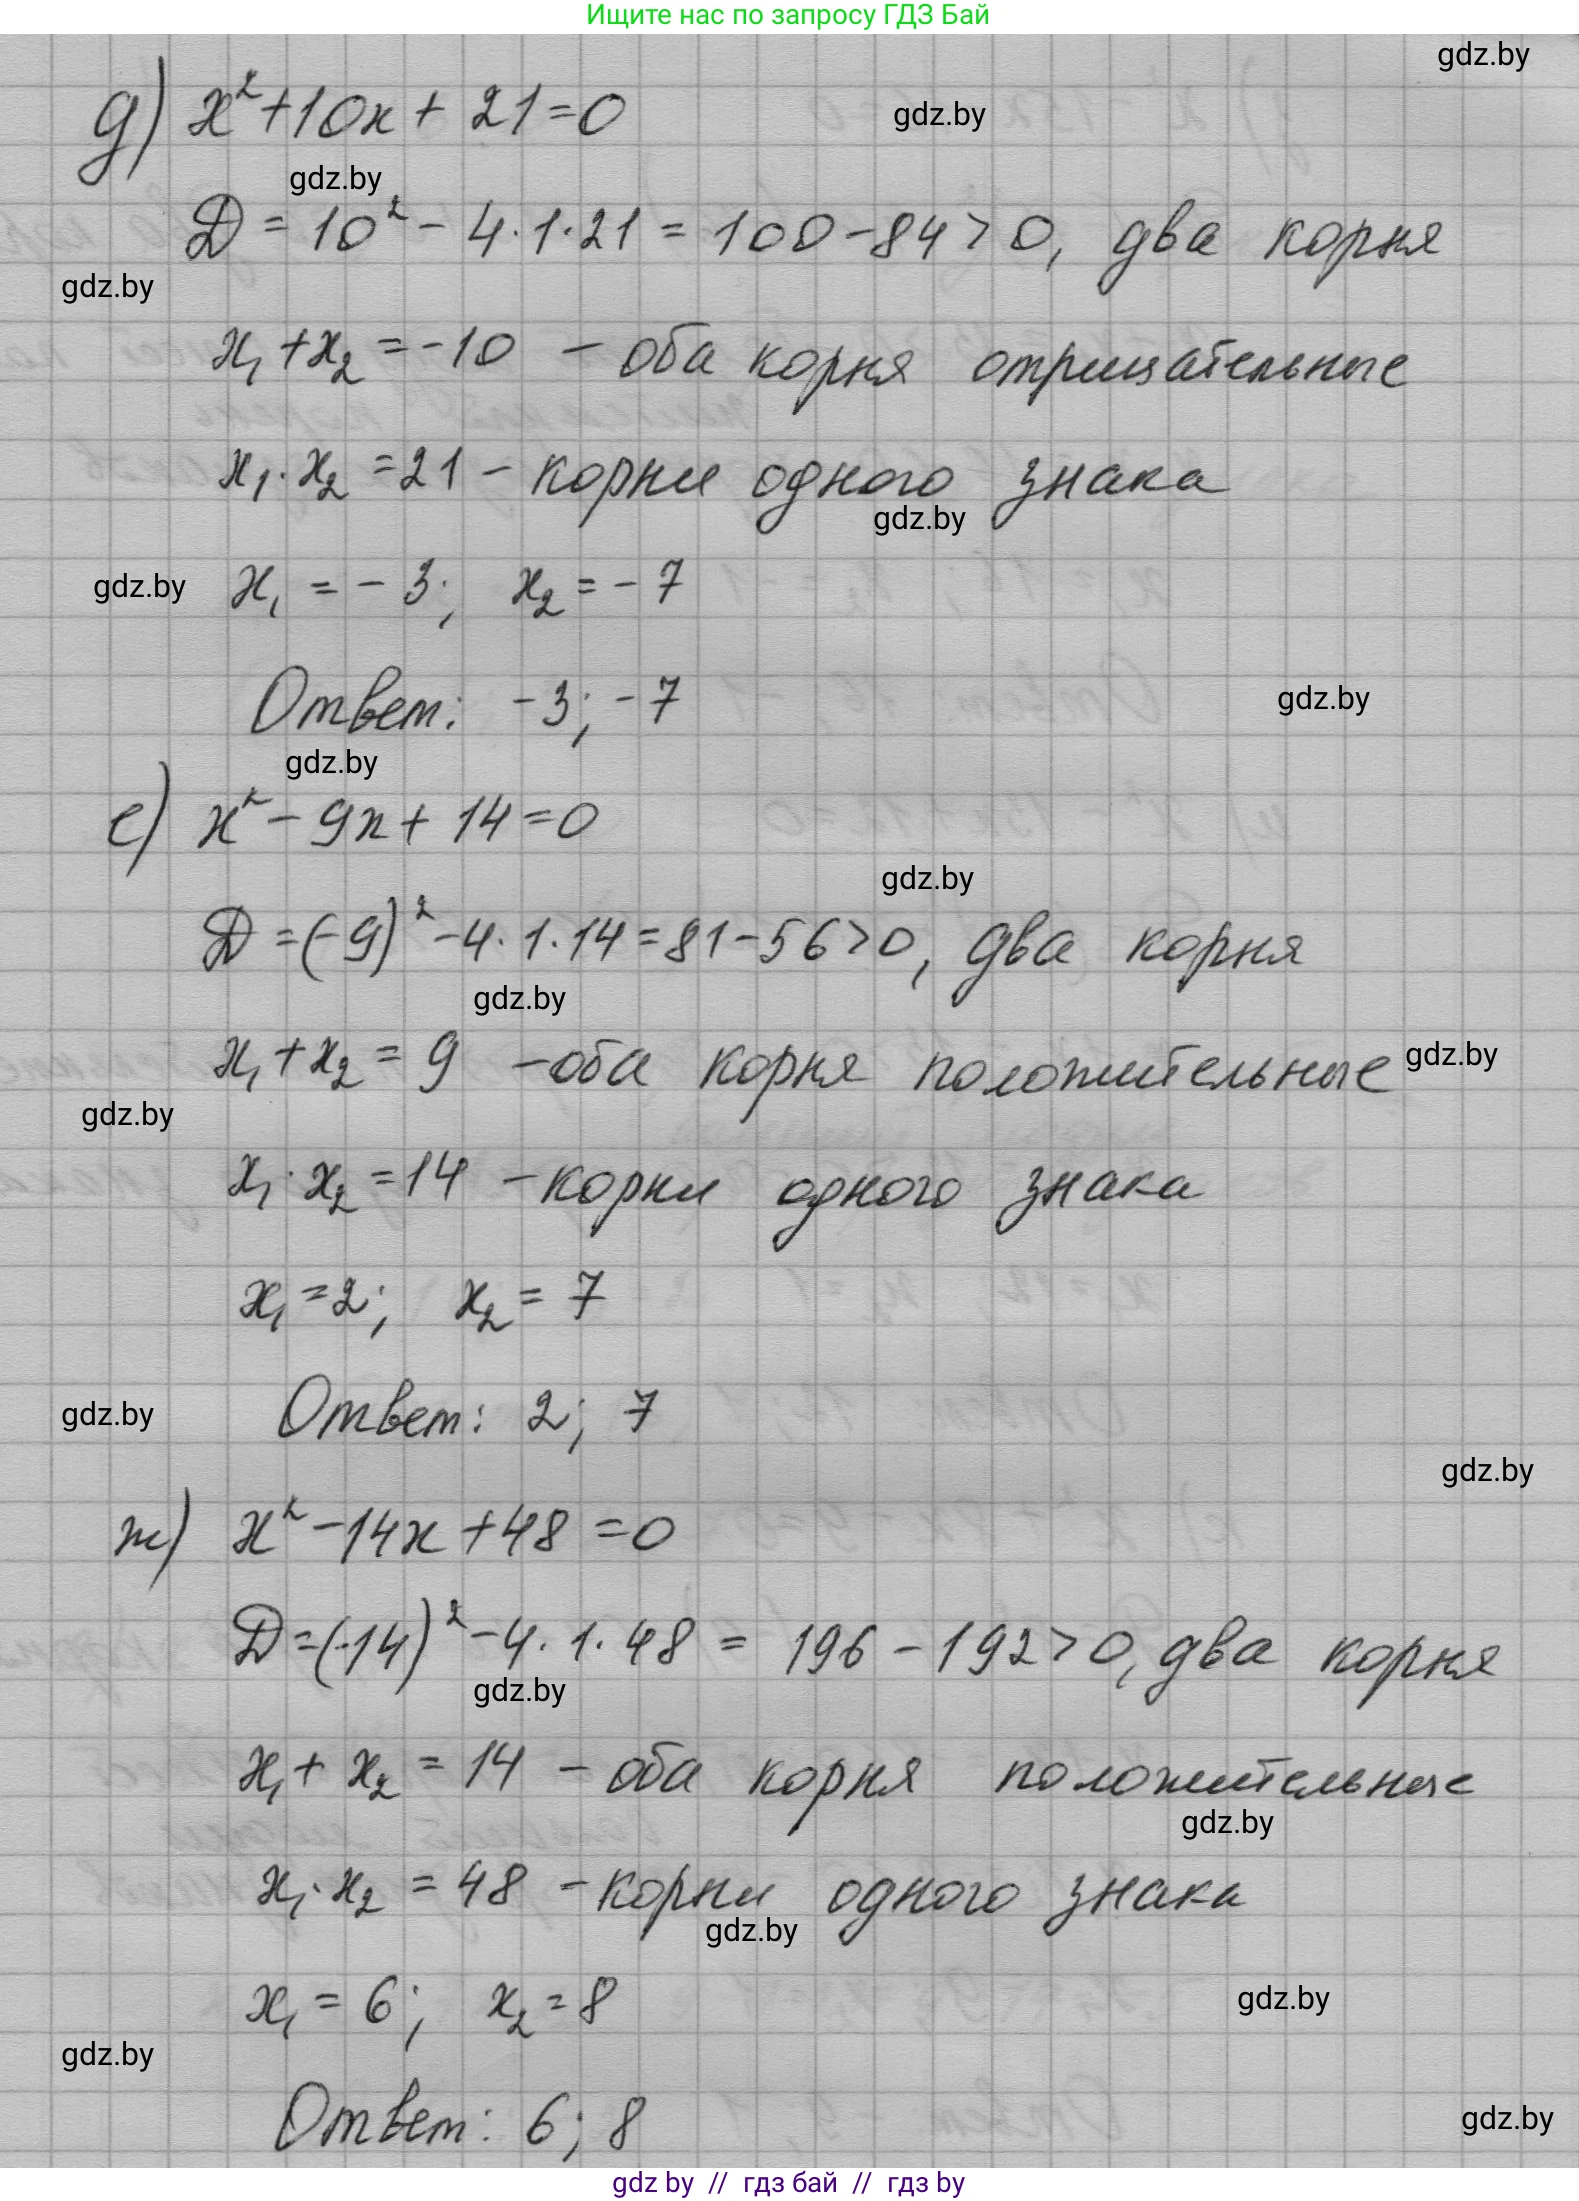 Ищите нас по запросу ГДЗ Бай
gdz.by
д) x²+10x+21=0
gdz.by
gdz.by
D=10²-4·1·21=100-84>0, два корня
gdz.by
x₁+x₂=-10 - оба корня отрицательные
x₁·x₂=21 - корни одного знака
gdz.by
gdz.by
x₁=-3; x₂=-7
Ответ: -3; -7
gdz.by
gdz.by
е) x²-9x+14=0
gdz.by
D=(-9)²-4·1·14=81-56>0, два корня
gdz.by
x₁+x₂=9 - оба корня положительные
gdz.by
gdz.by
x₁·x₂=14 - корни одного знака
x₁=2; x₂=7
Ответ: 2; 7
gdz.by
gdz.by
ж) x²-14x+48=0
D=(-14)²-4·1·48=196-192>0, два корня
gdz.by
x₁+x₂=14 - оба корня положительные
gdz.by
x₁·x₂=48 - корни одного знака
gdz.by
x₁=6; x₂=8
gdz.by
gdz.by
Ответ: 6; 8
gdz.by
gdz by // гдз бай // гдз by